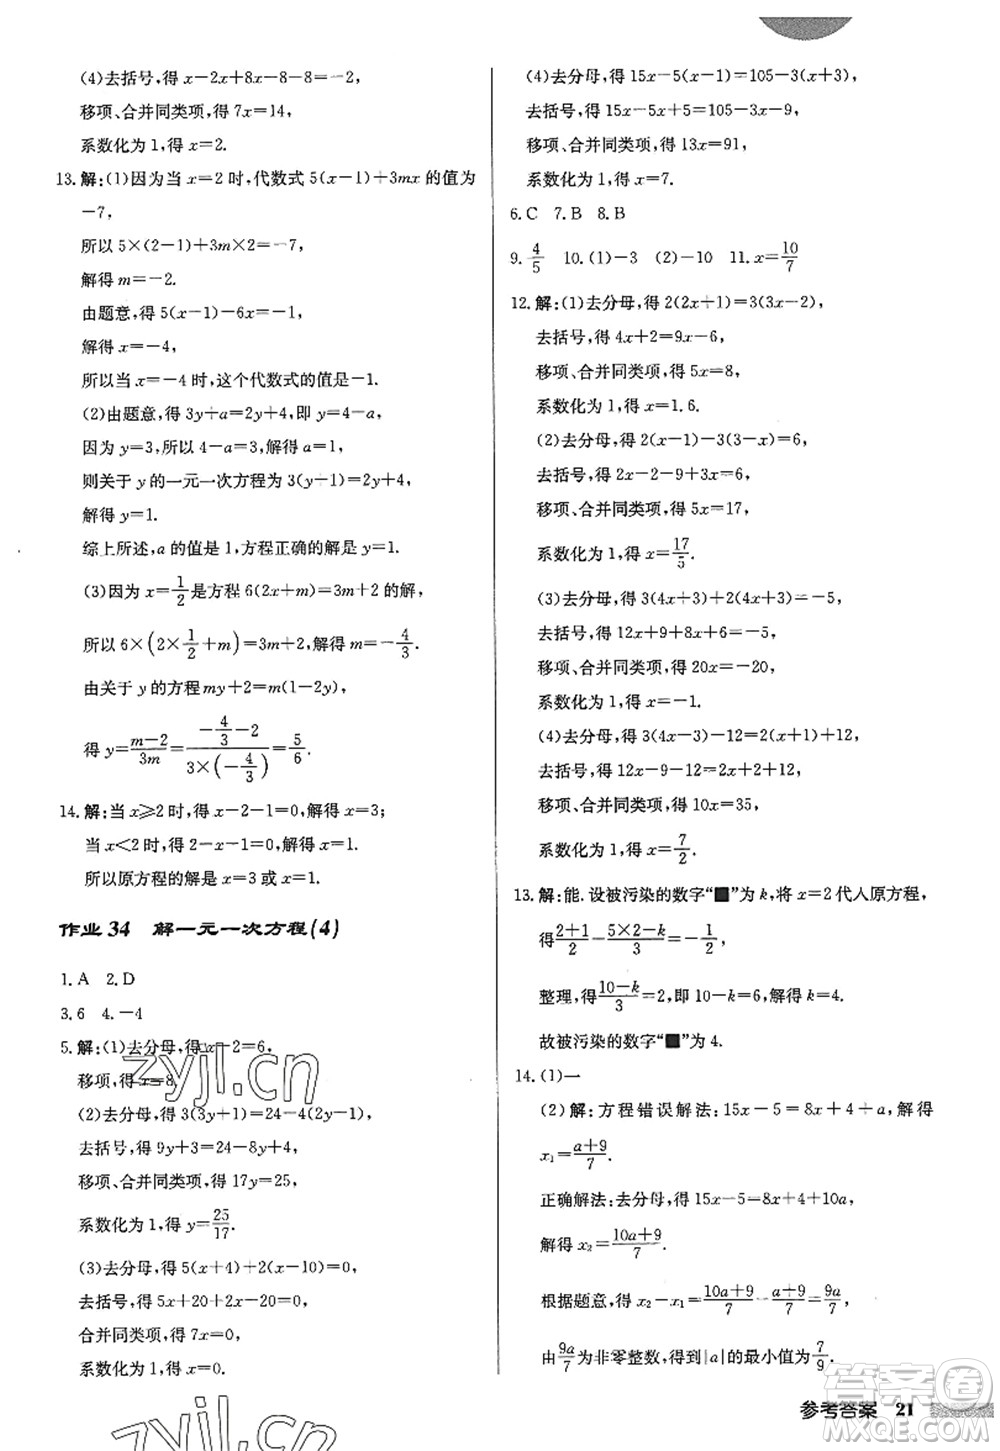 (4)去括号,得 x-2x+8x-8-8=-2,
移项、合并同类项,得 7x=14,
系数化为 1,得 x=2.
13.解:(1)因为当 x=2 时,代数式 5(x-1)+3mx 的值为
-7,
所以 5×(2-1)+3m×2=-7,
解得 m=-2.
由题意,得 5(x-1)-6x=-1,
解得 x=-4,
所以当 x=-4 时,这个代数式的值是-1.
(2)由题意,得 3y+a=2y+4,即 y=4-a,
因为 y=3,所以 4-a=3,解得 a=1,
则关于 y 的一元一次方程为 3(y+1)=2y+4,
解得 y=1.
综上所述,a 的值是 1,方程正确的解是 y=1.
(3)因为 x=1/2是方程 6(2x+m)=3m+2 的解,
所以 6×(2×1/2+m)=3m+2,解得 m=-4/3.
由关于 y 的方程 my+2=m(1-2y),
得 y=(m-2)/3m=(-4/3-2)/(3×(-4/3))=5/6.
14.解:当 x⩾2 时,得 x-2-1=0,解得 x=3;
当 x<2 时,得 2-x-1=0,解得 x=1.
所以原方程的解是 x=3 或 x=1.
作业 34 解一元一次方程(4)
1.A 2.D
3.6 4.-4
5.解:(1)去分母,得 x-2=6,
移项,得 x=8.
(2)去分母,得 3(3y+1)=24-4(2y-1),
去括号,得 9y+3=24-8y+4,
移项、合并同类项,得 17y=25,
系数化为 1,得 y=25/17.
(3)去分母,得 5(x+4)+2(x-10)=0,
去括号,得 5x+20+2x-20=0,
合并同类项,得 7x=0,
系数化为 1,得 x=0.
(4)去分母,得 15x-5(x-1)=105-3(x+3),
去括号,得 15x-5x+5=105-3x-9,
移项、合并同类项,得 13x=91,
系数化为 1,得 x=7.
6.C 7.B 8.B
9.4/5 10.(1)-3 (2)-10 11.x=10/7
12.解:(1)去分母,得 2(2x+1)=3(3x-2),
去括号,得 4x+2=9x-6,
移项、合并同类项,得 5x=8,
系数化为 1,得 x=1.6.
(2)去分母,得 2(x-1)-3(3-x)=6,
去括号,得 2x-2-9+3x=6,
移项、合并同类项,得 5x=17,
系数化为 1,得 x=17/5.
(3)去分母,得 3(4x+3)+2(4x+3)=-5,
去括号,得 12x+9+8x+6=-5,
移项、合并同类项,得 20x=-20,
系数化为 1,得 x=-1.
(4)去分母,得 3(4x-3)-12=2(x+7),
去括号,得 12x-9-12=2x+14,
移项、合并同类项,得 10x=35,
系数化为 1,得 x=7/2.
13.解:能.设被污染的数字“■”为 k,将 x=2 代入原方程,
得(2+1)/2-(5×2-k)/3=-1/2,
整理,得(10-k)/3=2,即 10-k=6,解得 k=4.
故被污染的数字“■”为 4.
14.(1)一
(2)解:方程错误解法:15x-5=8x+4+a,解得
x₁=(a+9)/7.
正确解法:去分母,得 15x-5=8x+4+10a,
解得 x₂=(10a+9)/7.
根据题意,得 x₂-x₁=(10a+9)/7-(a+9)/7=9a/7,
由9a/7为非零整数,得到|a|的最小值为7/9.
zyjl.cn
zyjl.cn
答案圈
MXQE.COM
参考答案 21